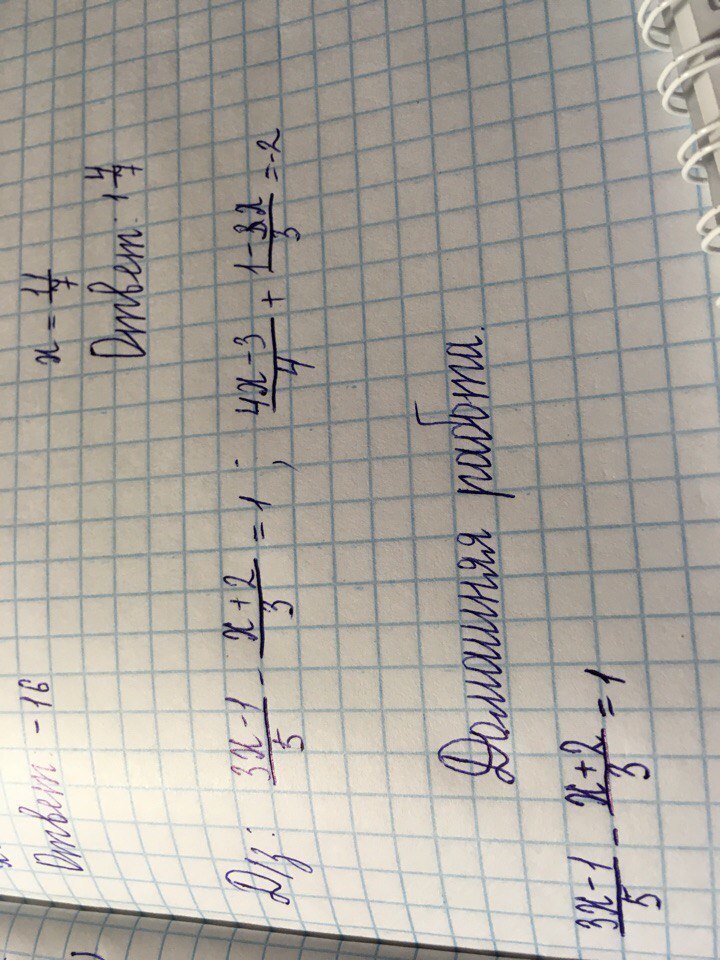 Ответ: -16
x = 11/7
Ответ: 1 4/7
Д/з: (3x-1)/5 - (x+2)/3 = 1 ; (4x-3)/4 + (1-3x)/3 = -2
Домашняя работа.
(3x-1)/5 - (x+2)/3 = 1